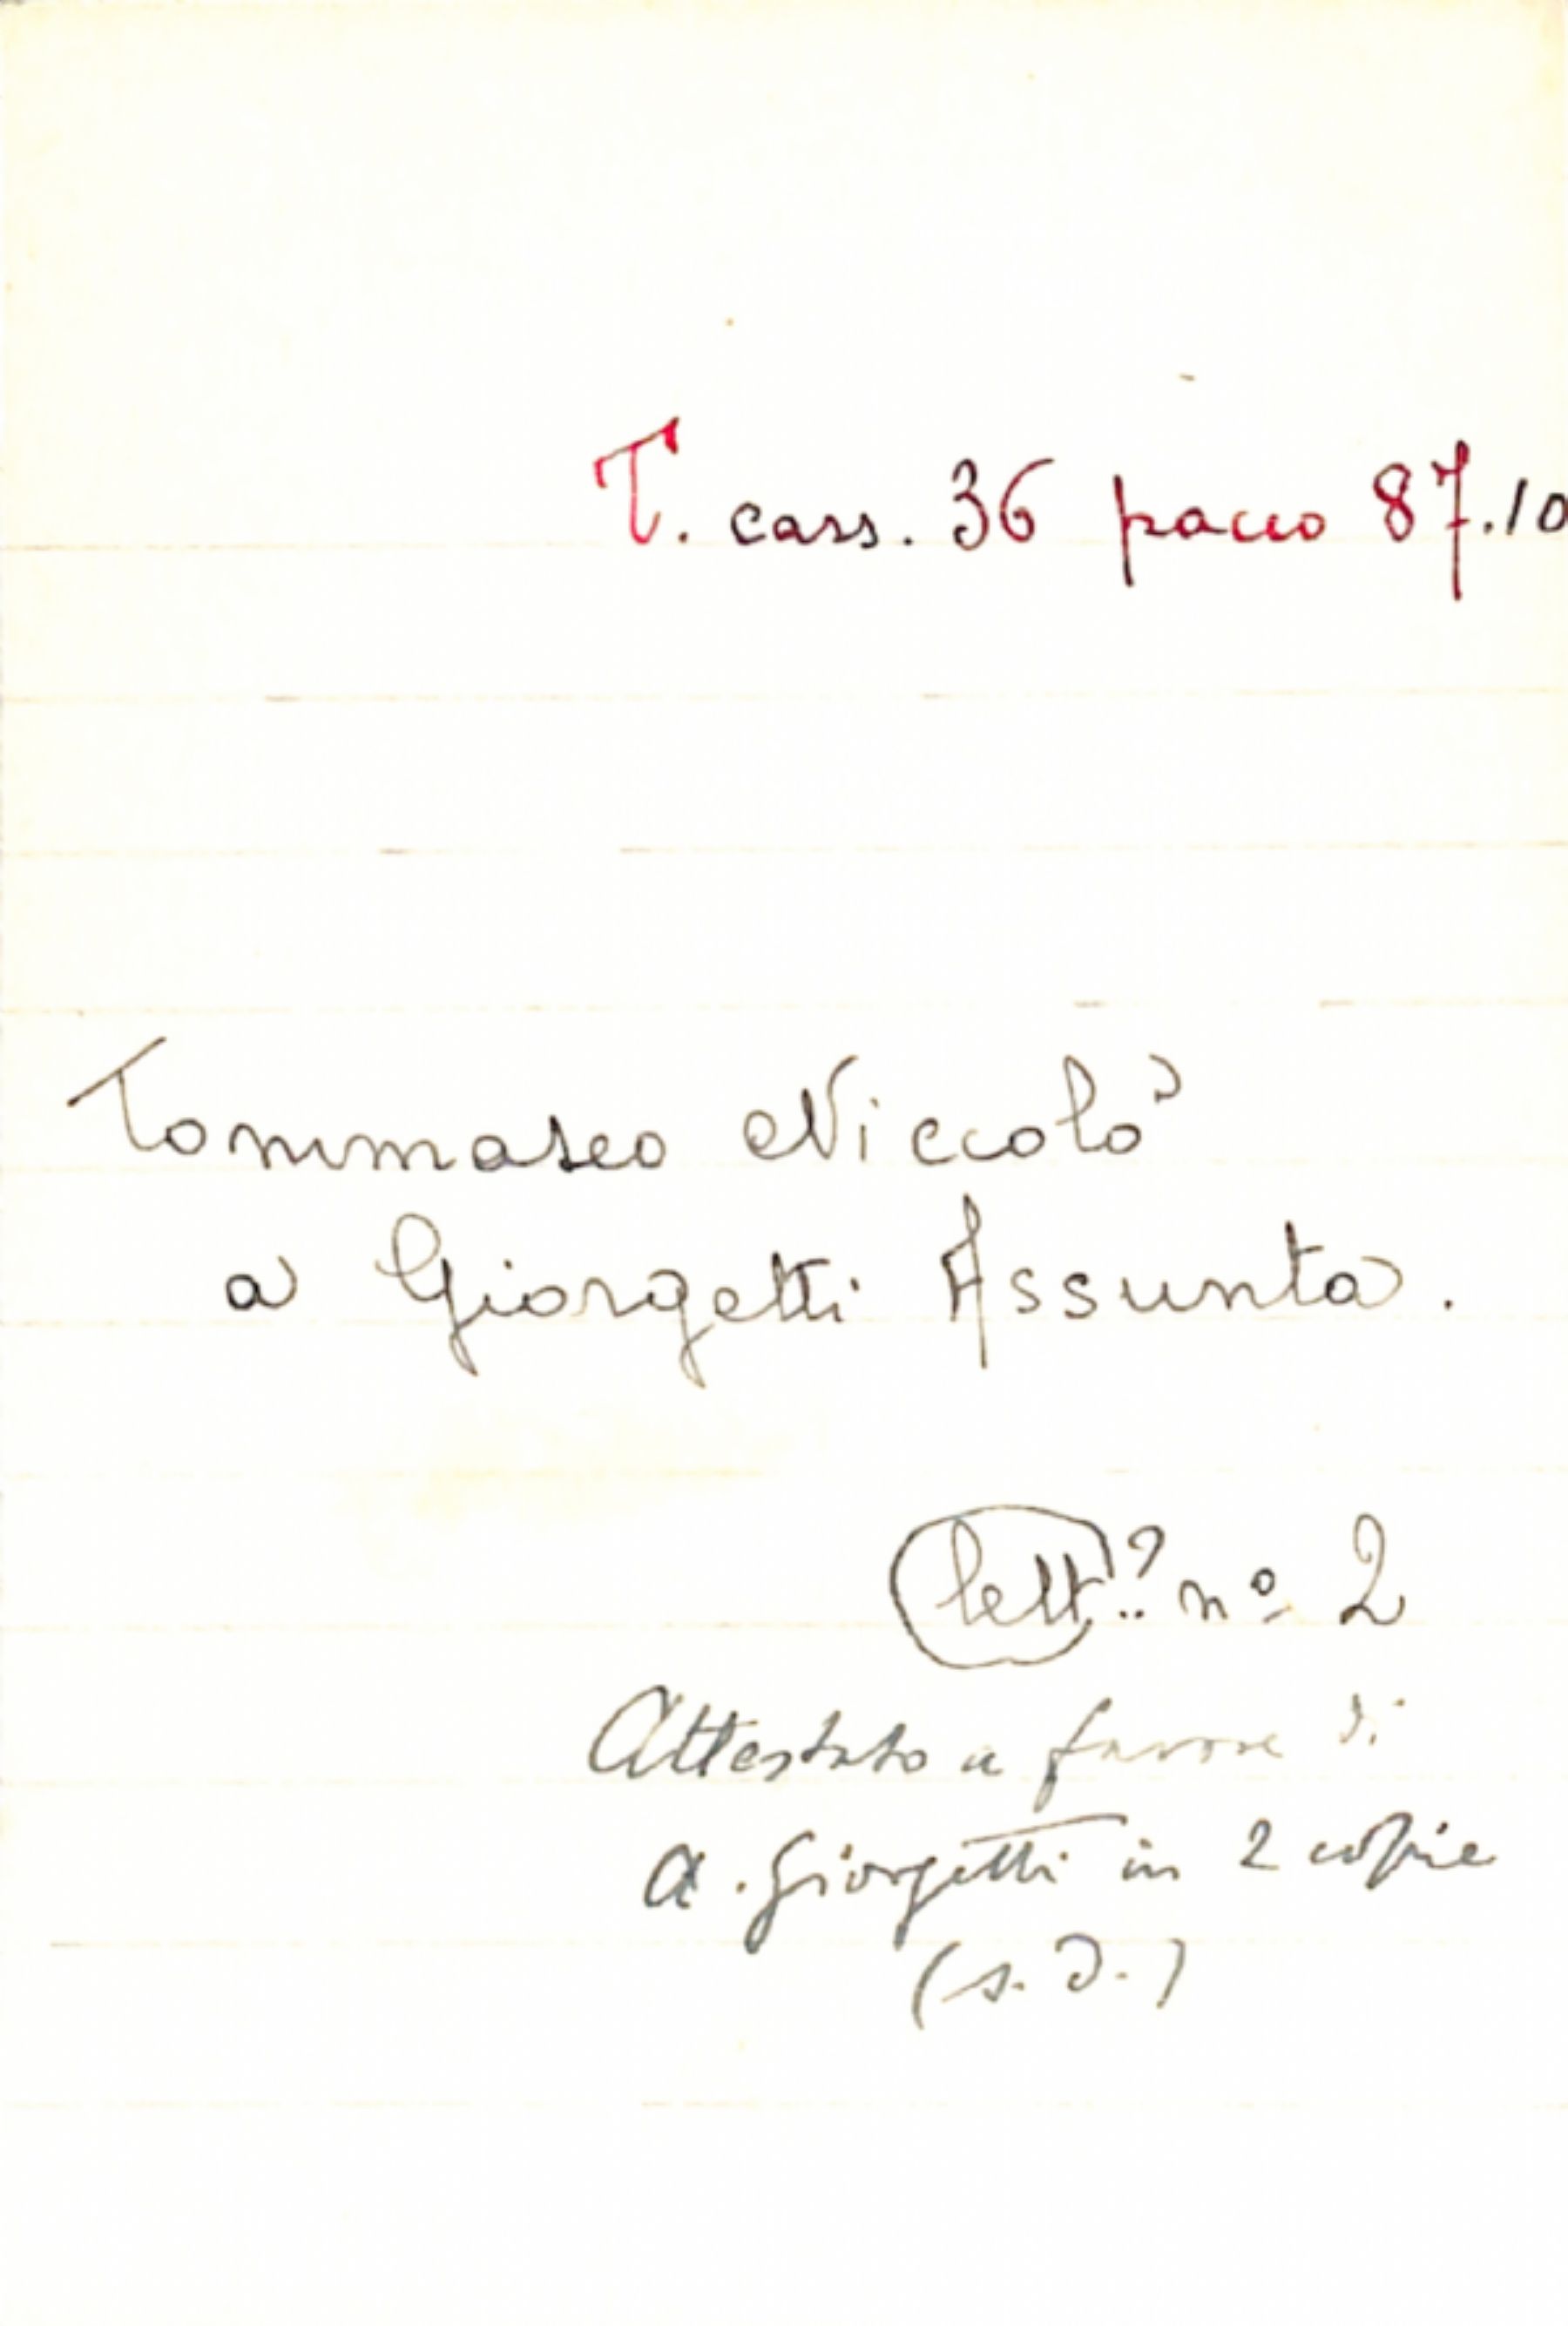 T. cass. 36 pacco 87.10
Tommaseo Niccolò
a Giorgetti Assunta.
lett.? nº 2
Attestato a favore di
A. Giorgetti in 2 copie
(s. d.)